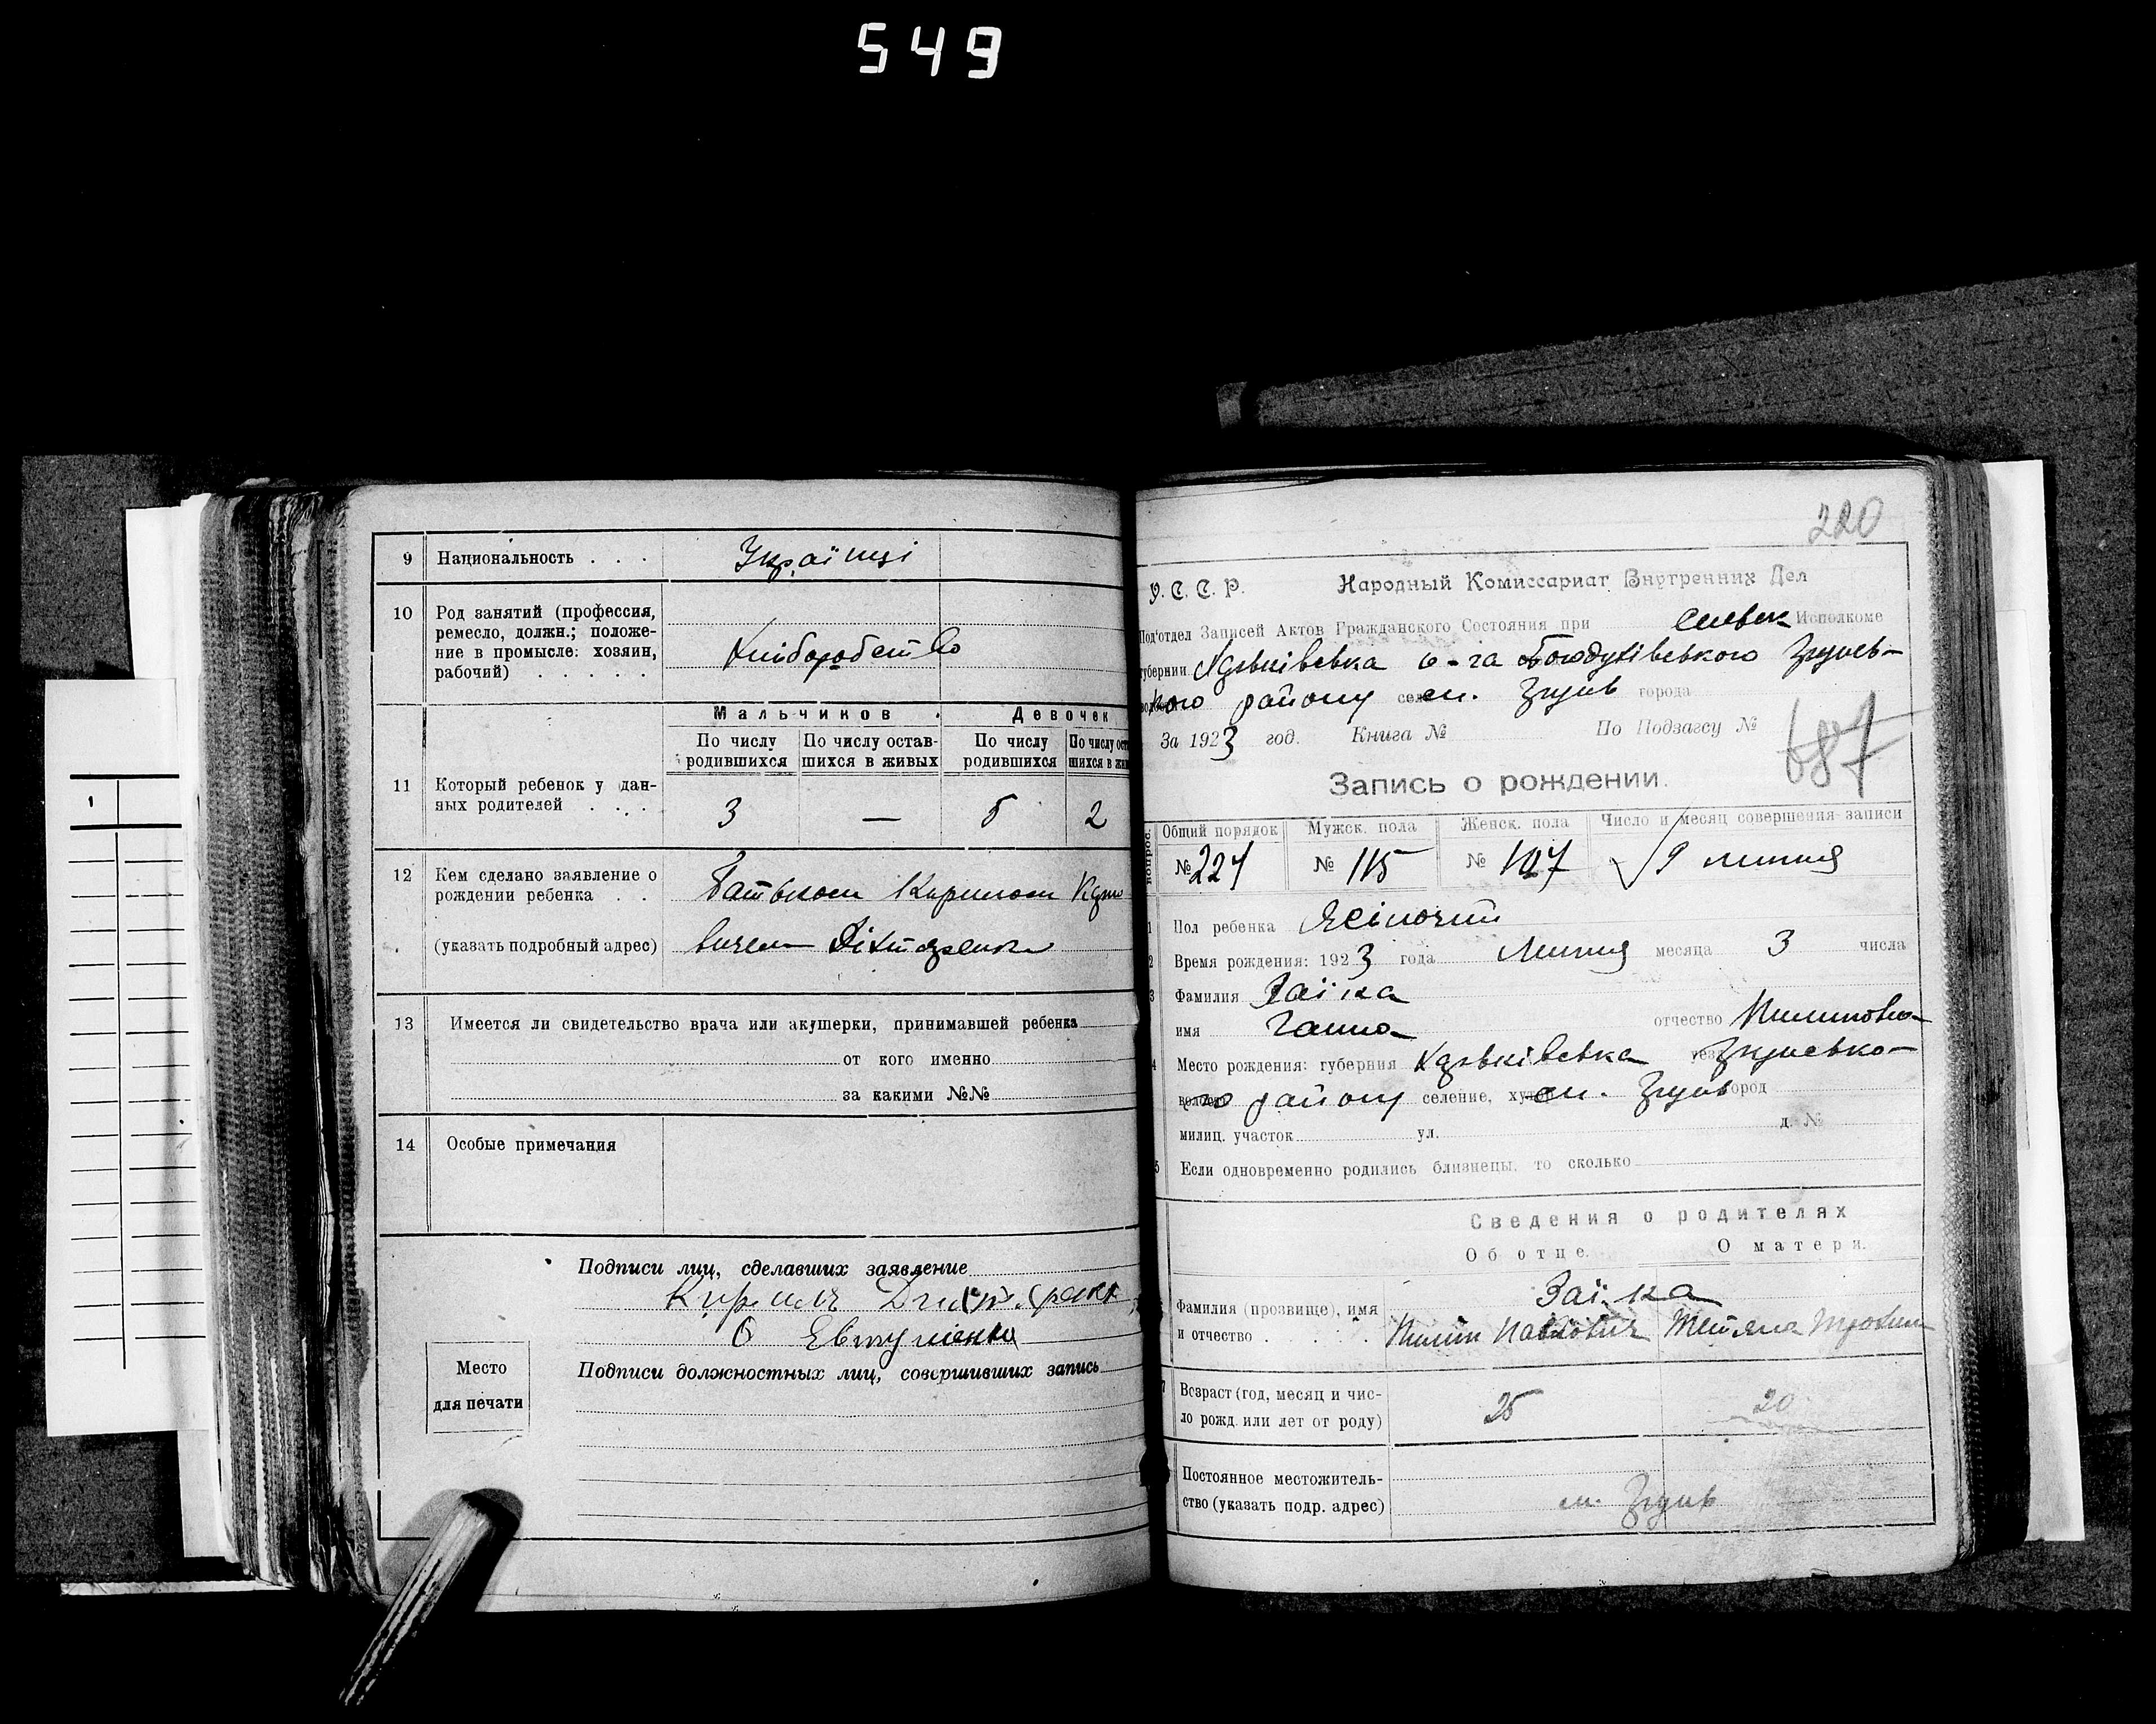 549
9 Национальность . . . Українці
10 Род занятий (профессия,
ремесло, должн.; положе-
ние в промысле: хозяин,
рабочий) . . . . . Хліборобство
Мальчиков Девочек
По числу родившихся По числу остав-шихся в живых По числу родившихся По числу
11 Который ребенок у дан-
ных родителей . . . 3 — 5 2
12 Кем сделано заявление о
рождении ребенка . . Батьком Кирилом
(указать подробный адрес)
13 Имеется ли свидетельство врача или акушерки, принимавшей ребенка
от кого именно
за какими №№
14 Особые примечания
Подписи лиц, сделавших заявление
Место
для печати
Подписи должностных лиц, совершивших запись
220
У. С. С. Р. Народный Комиссариат Внутренних Дел
Под'отдел Записей Актов Гражданского Состояния при Исполкоме
губернии Харьківська Богодухівського
району села м. города
За 1923 год. Книга № По Подзагсу № 687
Запись о рождении.
Общий порядок Мужск. пола Женск. пола Число и месяц совершения записи
№ № 115 № 107 9 липня
1 Пол ребенка Жіночий
2 Время рождения: 1923 года Липня месяца 3 числа
3 Фамилия Заїка
имя Ганна отчество
4 Место рождения: губерния Харьківська
району селение, м. город
милиц. участок ул. д. №
5 Если одновременно родились близнецы, то сколько
Сведения о родителях
Об отце. О матери.
Заїка
Фамилия (прозвище), имя
и отчество . . . . Пилип Павлович Тетяна
Возраст (год, месяц и чис-
ло рожд. или лет от роду) 25 20
Постоянное местожитель-
ство (указать подр. адрес) м.